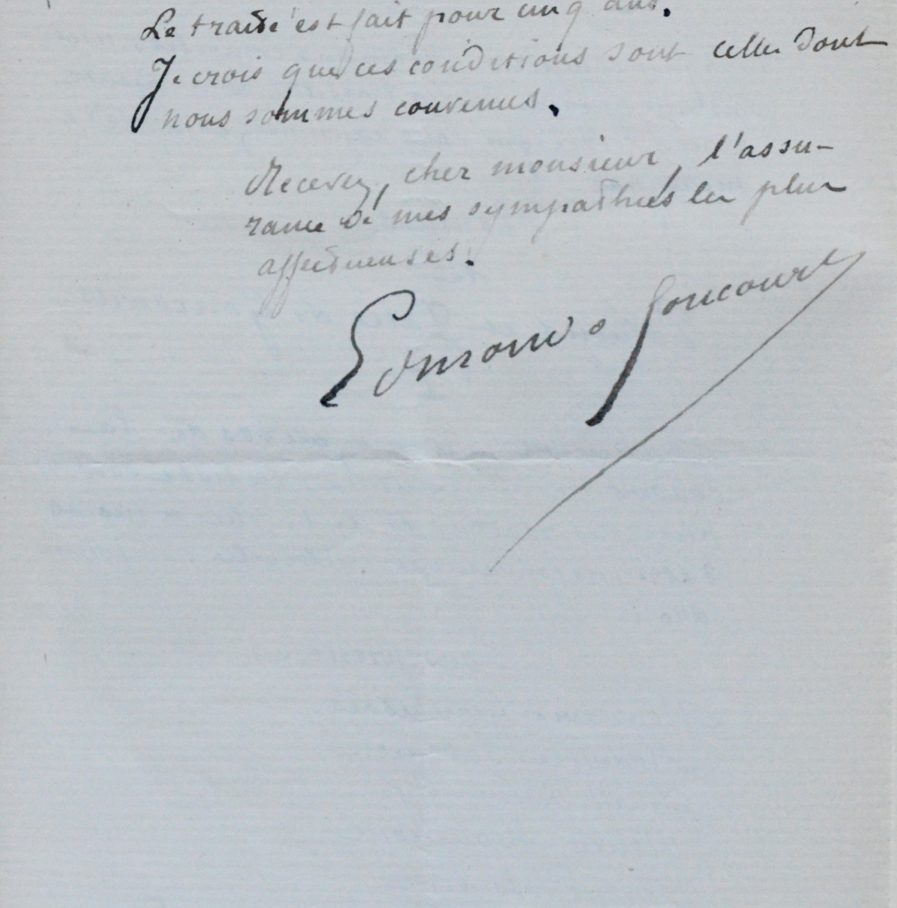 Le traité est fait pour cinq ans.
Je crois que ces conditions sont celles dont
nous sommes convenus.
Recevez, cher monsieur, l'assu-
rance de mes sympathies les plus
affectueuses.
Edmond de Goncourt